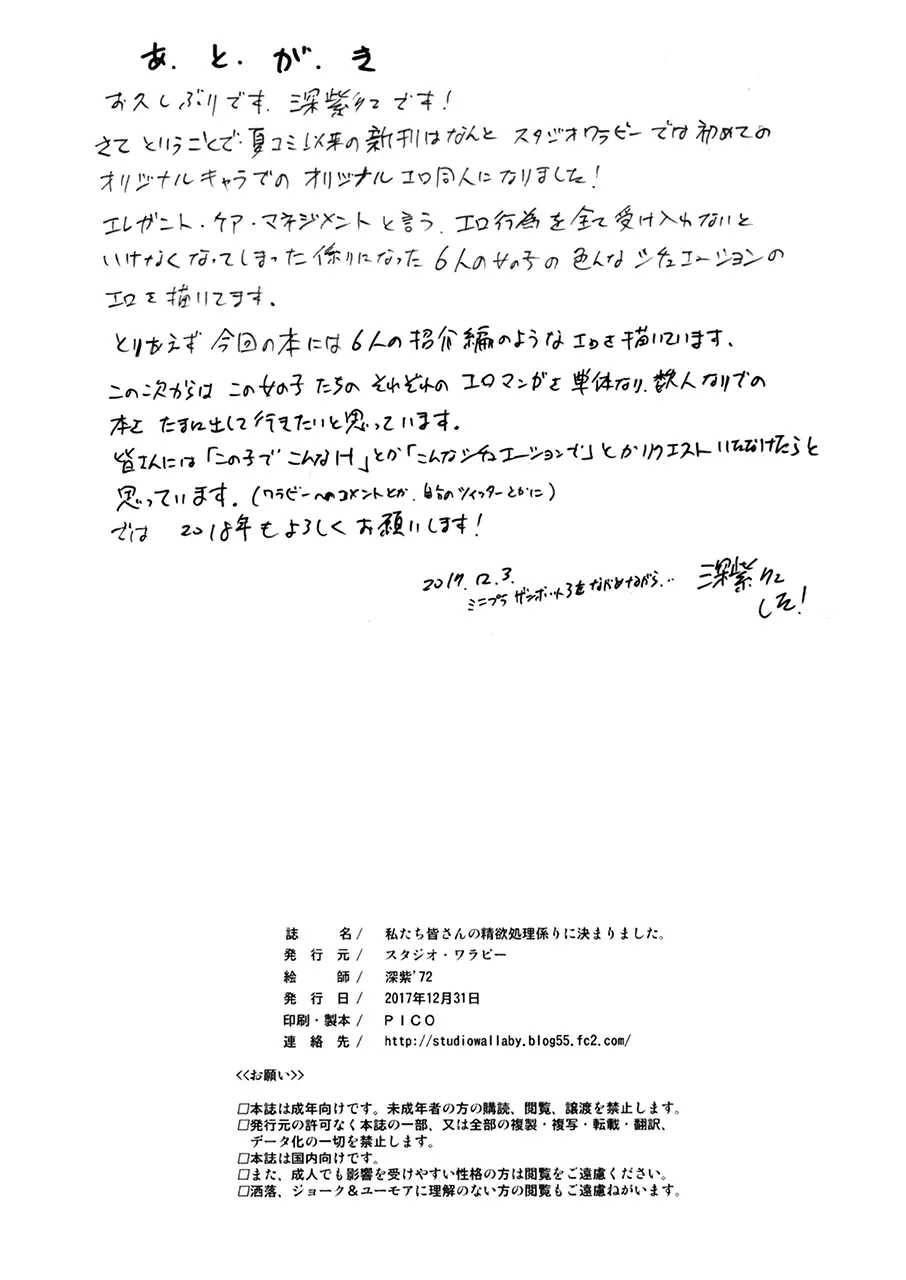 あ.と.が.き
お久しぶりです.深紫'72です!
さて ということで.夏コミ以来の新刊はなんと スタジオワラビーでは初めての
オリジナルキャラでの オリジナルエロ同人になりました!
エレガント・ケア・マネジメントと言う.エロ行為を全て受け入れないと
いけなくなってしまった係りになった 6人の女の子の 色んなシチュエーションの
エロを描いてます.
とりあえず 今回の本には 6人の紹介編のようなエロを描いています.
この次からは この女の子たちの それぞれの エロマンガを 単体なり.数人なりでの
本を たまに出して行きたいと思っています.
皆さんには「この子で こんなH」とか「こんなシチュエーションで」とかリクエストいただけたらと
思っています.(ワラビーへのコメントとか.自分のツイッターとかに)
では 2018年もよろしくお願いします!
2017.12.3.
ミニプラ ザンボット3をながめながら...
深紫'72
でした!
誌 名/ 私たち皆さんの精欲処理係りに決まりました。
発 行 元/ スタジオ・ワラビー
絵 師/ 深紫'72
発 行 日/ 2017年12月31日
印刷・製本/ PICO
連 絡 先/ http://studiowallaby.blog55.fc2.com/
<<お願い>>
□本誌は成年向けです。未成年者の方の購読、閲覧、譲渡を禁止します。
□発行元の許可なく本誌の一部、又は全部の複製・複写・転載・翻訳、
データ化の一切を禁止します。
□本誌は国内向けです。
□また、成人でも影響を受けやすい性格の方は閲覧をご遠慮ください。
□洒落、ジョーク&ユーモアに理解のない方の閲覧もご遠慮ねがいます。